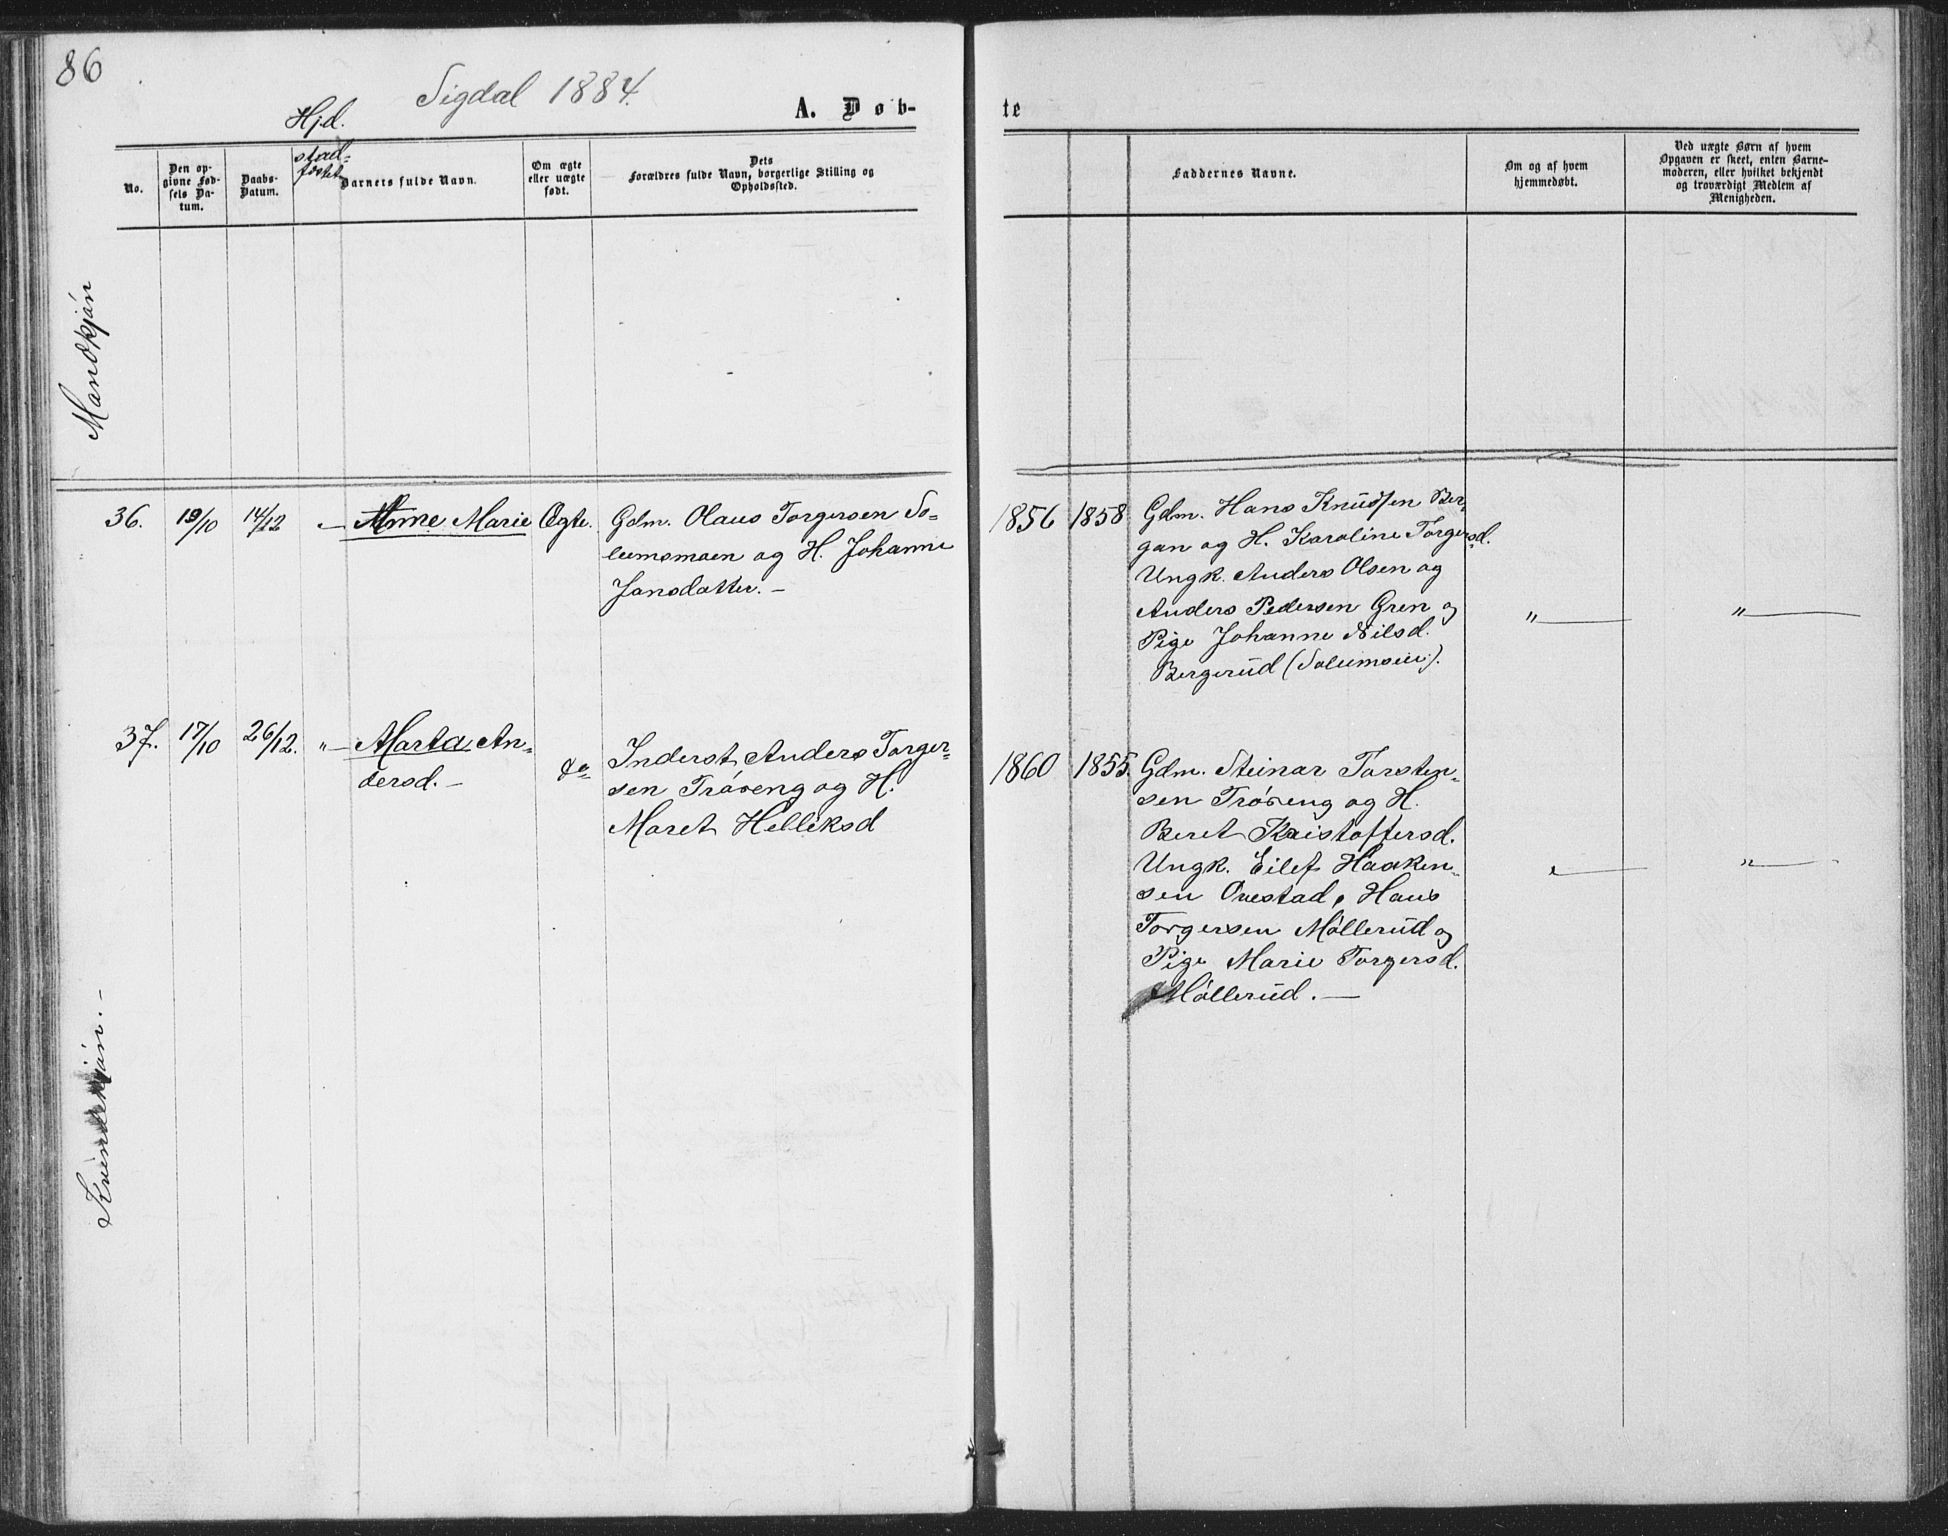 86
Sigdal 1884.
A. Døb-
te
No.
Den op-
givne Fød-
sels Da-
tum.
Daabs-
Datum.
Hjd.
stad-
fæstet
Barnets fulde Navn.
Om ægte
eller uægte
født.
Dets
Forældres fulde Navn, borgerlige Stilling og
Opholdssted.
Faddernes Navne.
Om og af hvem
hjemmedøbt.
Ved uægte Børn af hvem
Opgaven er skeet, enten Barne-
moderen, eller hvilket bekjendt
og troværdigt Medlem af
Menigheden.
Mandkjøn
36. 19/10 14/12 — Anne Marie Ægte.
Gdm. Olaus Torgersen So-
lumsmoen og H. Johanne
Jansdatter. —
1856 1858
Gdm. Hans Knudsen Ber-
gan og H. Karoline Torgersd.
Ungk. Anders Olsen og
Anders Pedersen Gren og
Pige Johanne Nilsd.
Bergerud (Solumsm).
" — " —
Kvindekjøn. —
37. 17/10 26/12. " — Marta An-
dersd. —
do
Inderst Anders Torger-
sen Trøseng og H.
Maret Helliksd
1860 1855.
Gdm. Steinar Torsten-
sen Trøseng og H.
Beret Kristoffersd.
Ungk. Eilef Haaken-
sen Ovestad, Hans
Torgersen Møllerud og
Pige Marie Torgersd.
Møllerud. —
" — " —